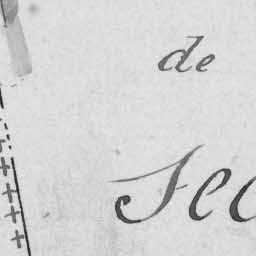 de
Sec